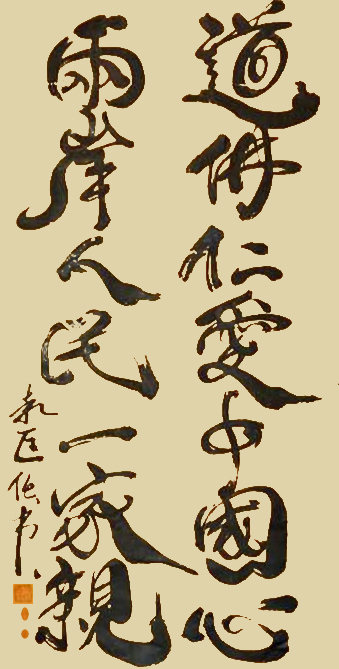 道佛仁愛中國心
兩岸人民一家親